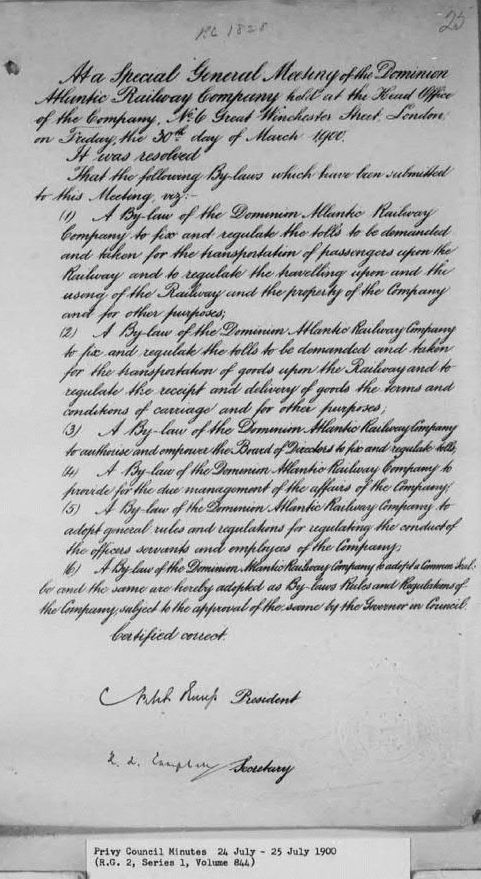 PC 1828
25
At a Special General Meeting of the Dominion
Atlantic Railway Company held at the Head Office
of the Company, No. 6 Great Winchester Street, London,
on Friday, the 30th day of March 1900.
It was resolved
That the following By-laws which have been submitted
to this Meeting, viz:-
(1) A By-law of the Dominion Atlantic Railway
Company to fix and regulate the tolls to be demanded
and taken for the transportation of passengers upon the
Railway and to regulate the travelling upon and the
using of the Railway and the property of the Company
and for other purposes;
(2) A By-law of the Dominion Atlantic Railway Company
to fix and regulate the tolls to be demanded and taken
for the transportation of goods upon the Railway and to
regulate the receipt and delivery of goods the terms and
conditions of carriage and for other purposes;
(3) A By-law of the Dominion Atlantic Railway Company
to authorise and empower the Board of Directors to fix and regulate tolls;
(4) A By-law of the Dominion Atlantic Railway Company to
provide for the due management of the affairs of the Company;
(5) A By-law of the Dominion Atlantic Railway Company to
adopt general rules and regulations for regulating the conduct of
the officers servants and employees of the Company;
(6) A By-law of the Dominion Atlantic Railway Company to adopt a Common Seal:-
be and the same are hereby adopted as By-laws Rules and Regulations of
the Company, subject to the approval of the same by the Governor in Council.
Certified correct.
President
Secretary
Privy Council Minutes 24 July - 25 July 1900
(R.G. 2, Series 1, Volume 844)